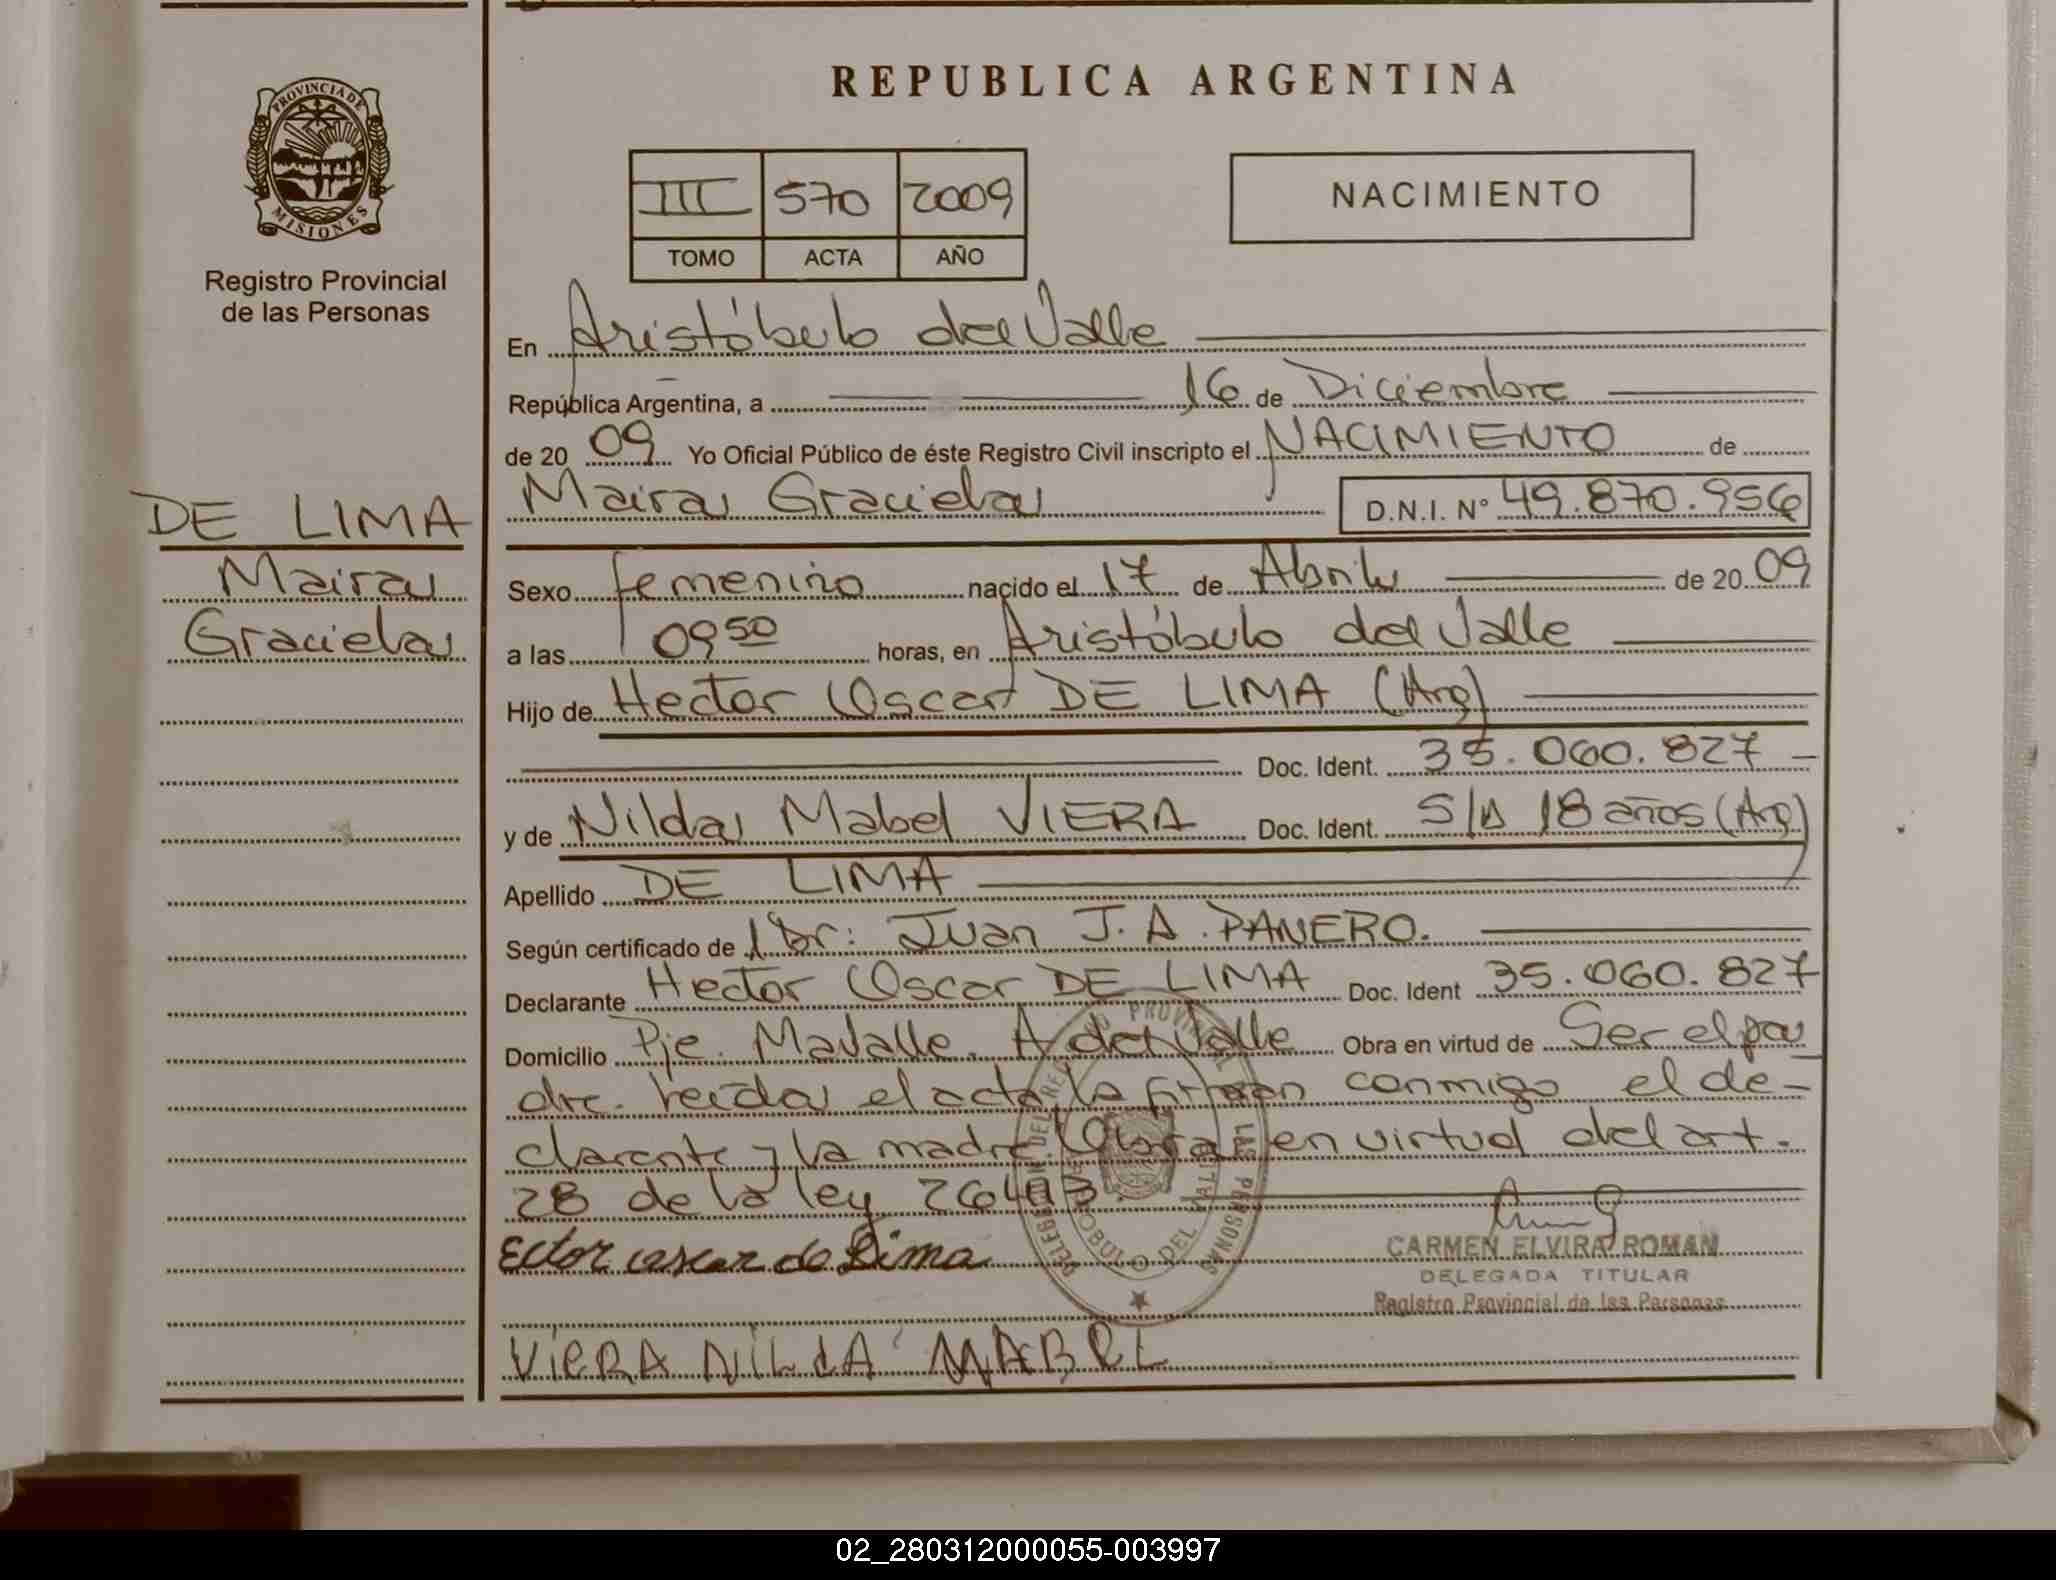 REPUBLICA ARGENTINA
PROVINCIA DE
MISIONES
Registro Provincial
de las Personas
III 570 2009
TOMO ACTA AÑO
NACIMIENTO
En Aristóbulo del Valle
República Argentina, a 16 de Diciembre
de 20 09 Yo Oficial Público de éste Registro Civil inscripto el NACIMIENTO de
DE LIMA
Maira Graciela D.N.I. N° 49.870.956
Maira
Graciela
Sexo femenino nacido el 17 de Abril de 20 09
a las 09 50 horas, en Aristóbulo del Valle
Hijo de Hector Oscar DE LIMA (Arg)
Doc. Ident. 35.060.827
y de Nilda Mabel VIERA Doc. Ident. S/D 18 años (Arg)
Apellido DE LIMA
Según certificado de Dr: Juan J. A. PANERO.
Declarante Hector Oscar DE LIMA Doc. Ident 35.060.827
Domicilio Pje. Mavalle. A del Valle Obra en virtud de Ser el pa
dre. Leída el acta, la firman conmigo el de-
clarante y la madre. Obra en virtud del art.
28 de la ley 26413.
Ector oscar de Lima
CARMEN ELVIRA ROMAN
DELEGADA TITULAR
Registro Provincial de las Personas
ViERA NiLdA MABEL
02_280312000055-003997